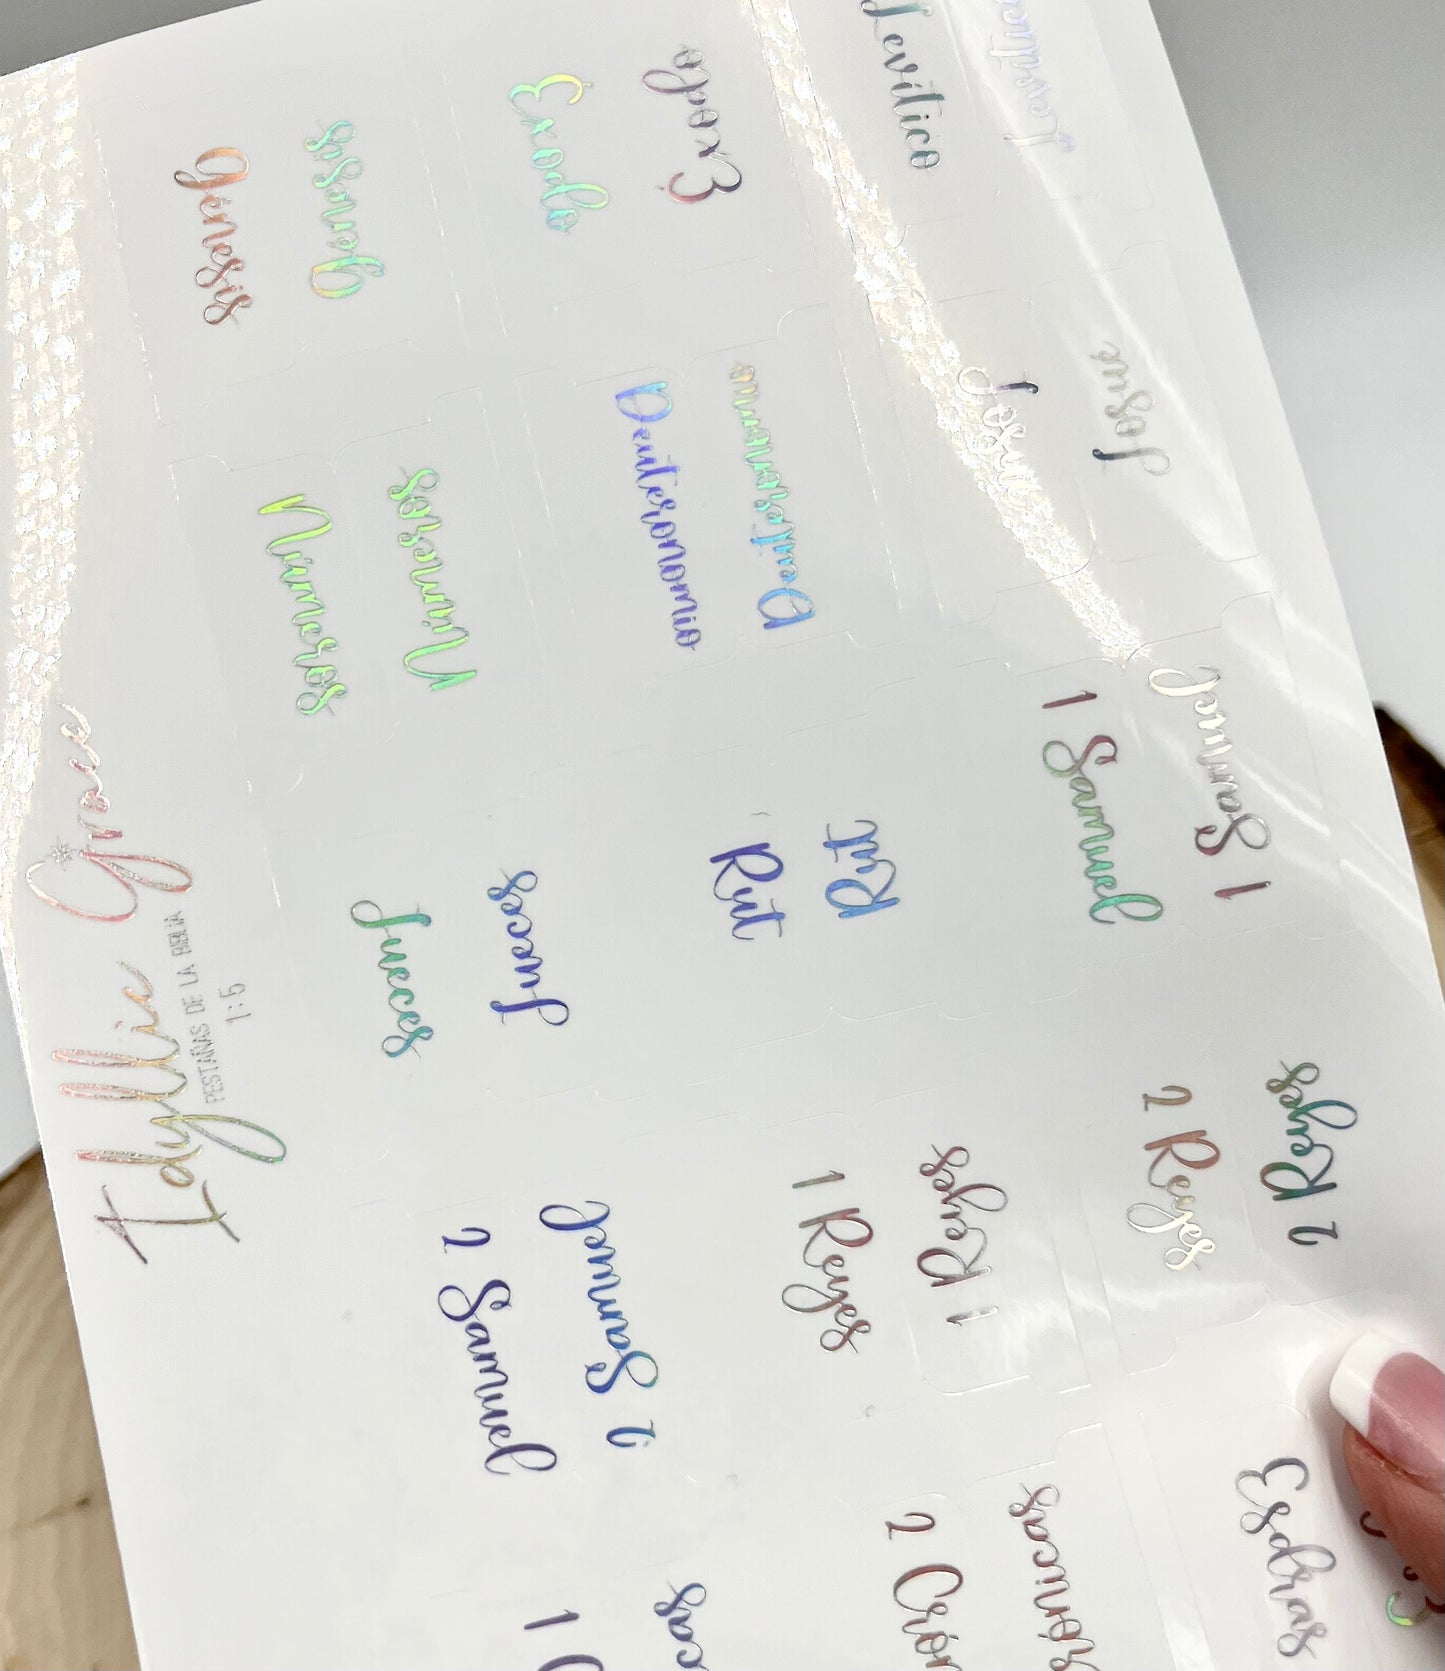 Idyllic Grace
PESTAÑAS DE LA BIBLIA
1:5
Génesis
Génesis
Éxodo
Éxodo
Levítico
Levítico
Números
Números
Deuteronomio
Deuteronomio
Josue
Josue
Jueces
Jueces
Rut
Rut
1 Samuel
1 Samuel
2 Samuel
2 Samuel
1 Reyes
1 Reyes
2 Reyes
2 Reyes
2 Crón
Esdras